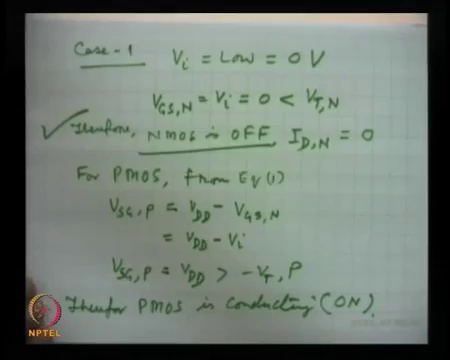 Case-1 Vi = Low = 0 V
VGS,N = Vi = 0 < VT,N
Therefore, NMOS is OFF, ID,N = 0
For PMOS, from Eq(1)
VSG,P = VDD - VGS,N
= VDD - Vi
VSG,P = VDD > -VT,P
Therefor PMOS is conducting (ON).
NPTEL